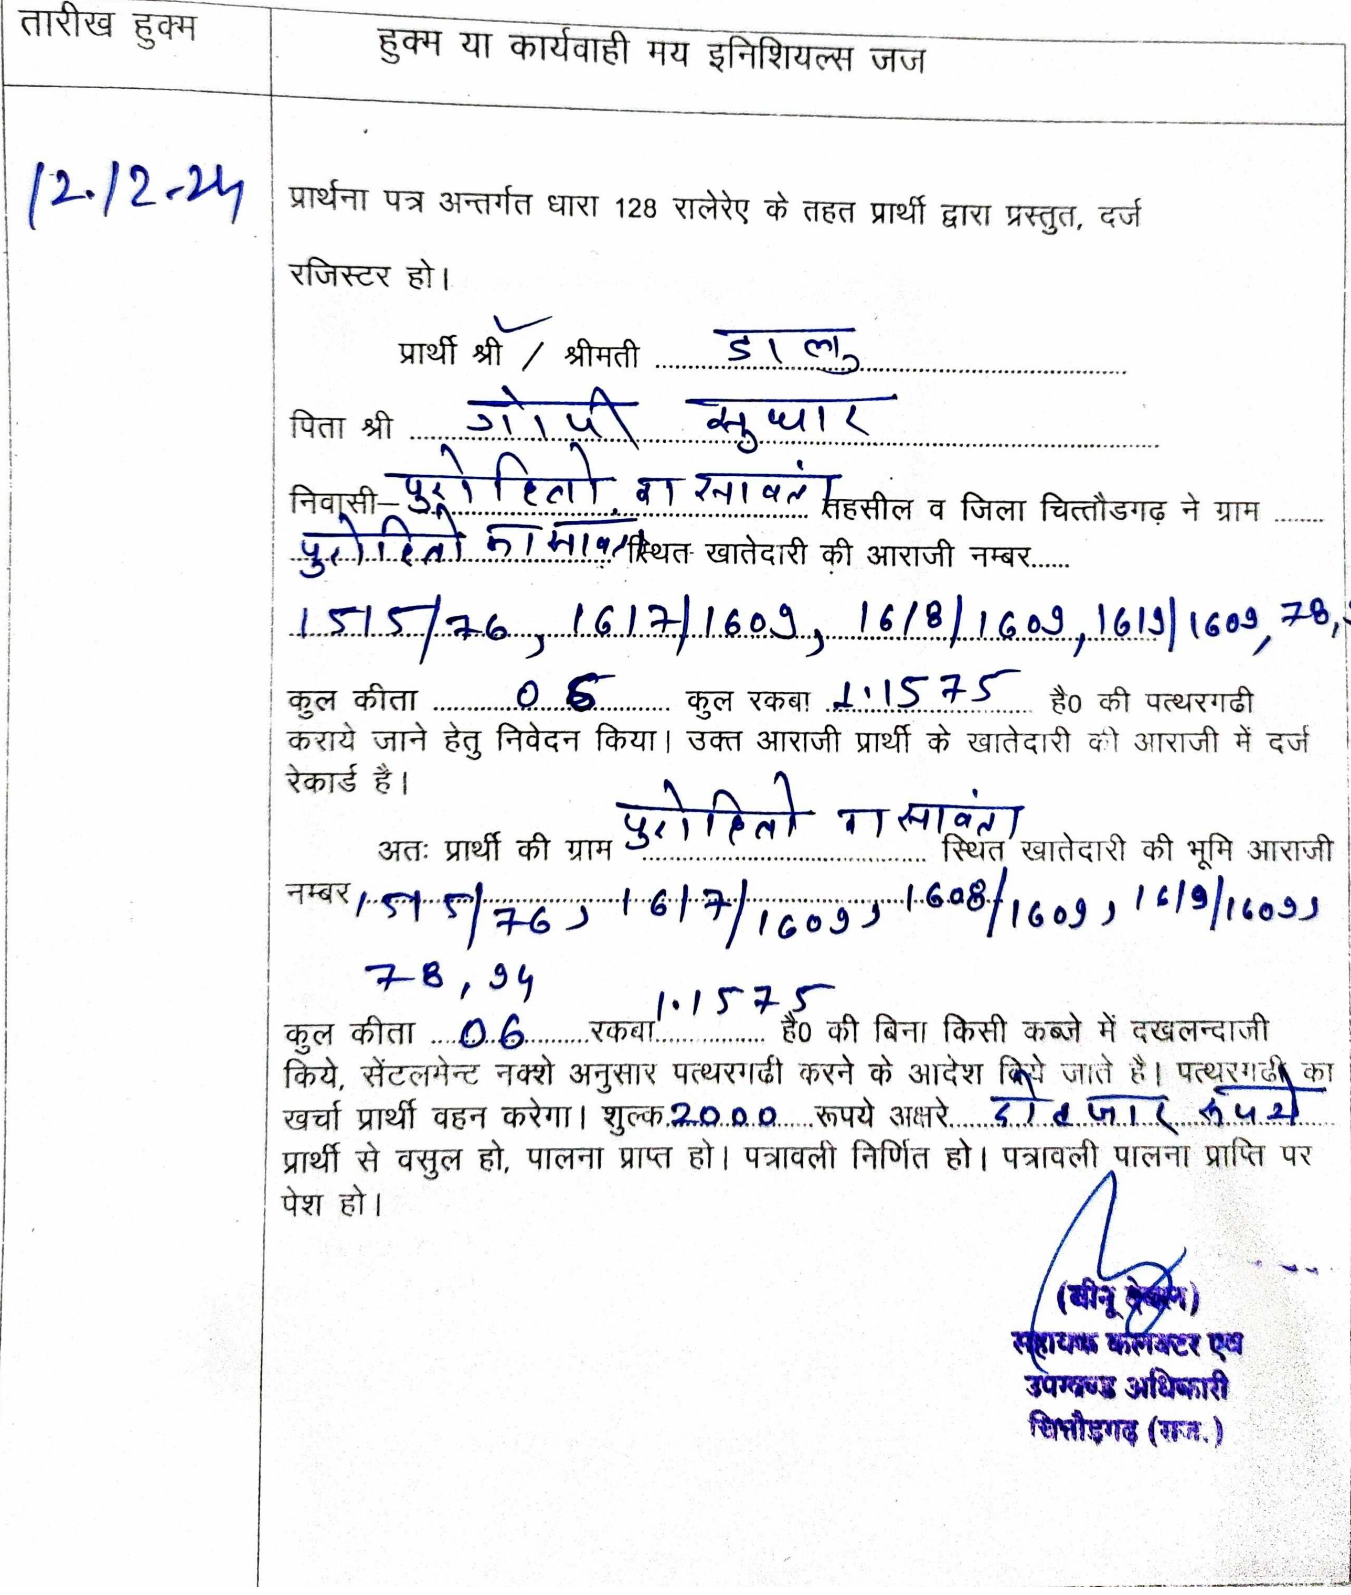 तारीख हुक्म
हुक्म या कार्यवाही मय इनिशियल्स जज
12.12-24
प्रार्थना पत्र अन्तर्गत धारा 128 रालेरेए के तहत प्रार्थी द्वारा प्रस्तुत, दर्ज
रजिस्टर हो।
प्रार्थी श्री / श्रीमती डालु
पिता श्री गोपी सुथार
निवासी– पुरोहितो का सावंता तहसील व जिला चित्तौडगढ़ ने ग्राम ........
पुरोहितो का सावता स्थित खातेदारी की आराजी नम्बर......
1515/76, 1617/1609, 1618/1609, 1619/1609, 78,
कुल कीता 06 कुल रकबा 1.1575 है0 की पत्थरगढी
कराये जाने हेतु निवेदन किया। उक्त आराजी प्रार्थी के खातेदारी की आराजी में दर्ज
रेकार्ड है।
अतः प्रार्थी की ग्राम पुरोहितो का सावंता स्थित खातेदारी की भूमि आराजी
नम्बर 1515/76, 1617/1609, 1608/1609, 1619/1609,
78, 94
कुल कीता 06 रकबा 1.1575 है0 की बिना किसी कब्जे में दखलन्दाजी
किये, सेंटलमेन्ट नक्शे अनुसार पत्थरगढी करने के आदेश दिये जाते है। पत्थरगढी का
खर्चा प्रार्थी वहन करेगा। शुल्क 2000 रूपये अक्षरे दो हजार रूपये
प्रार्थी से वसुल हो, पालना प्राप्त हो। पत्रावली निर्णित हो। पत्रावली पालना प्राप्ति पर
पेश हो।
(बीनू देवल)
सहायक कलक्टर एवं
उपखण्ड अधिकारी
चित्तौड़गढ़ (राज.)